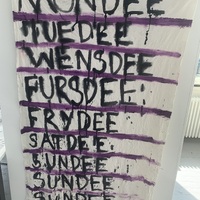 MUNDEE
TUEDEE
WENSDEE
FURSDEE:
FRYDEE
SATDEE:
SUNDEE
SUNDEE
SUNDEE